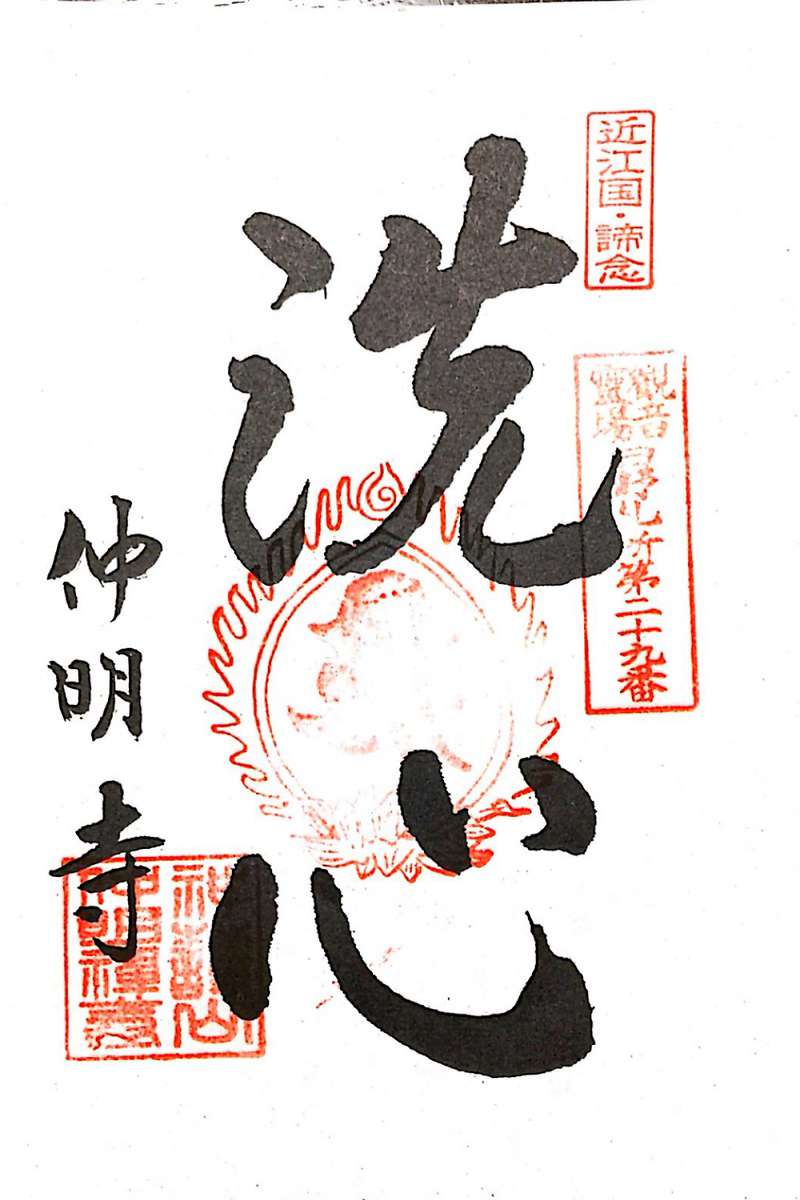 近江国・諦念
觀音
靈場
第二十九番
洗心
仲明寺
仲明禅寺